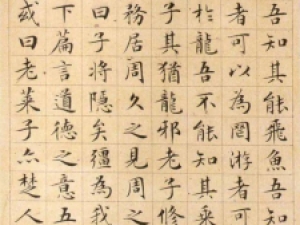 吾知其能飛魚吾知
者可以為罔游者可
於龍吾不能知其乘
子其猶龍邪老子修
務居周久之見周之
曰子將隱矣彊為我
下篇言道德之意五
或曰老萊子亦楚人